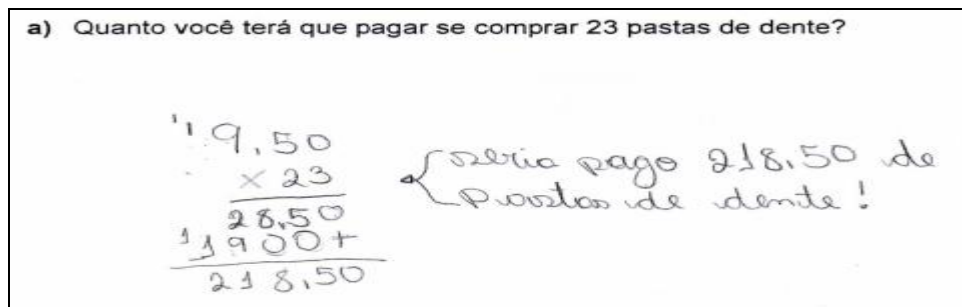 a) Quanto você terá que pagar se comprar 23 pastas de dente?
11 9,50
x 23
28,50
1 1900+
218,50
seria pago 218,50 de
Pastas de dente!